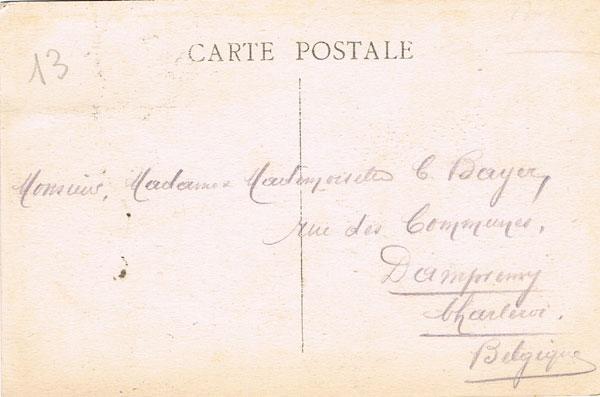 CARTE POSTALE
13
Monsieur, Madame & Mademoiselle C. Bayer,
rue des Communes.
Dampremy
Charleroi.
Belgique